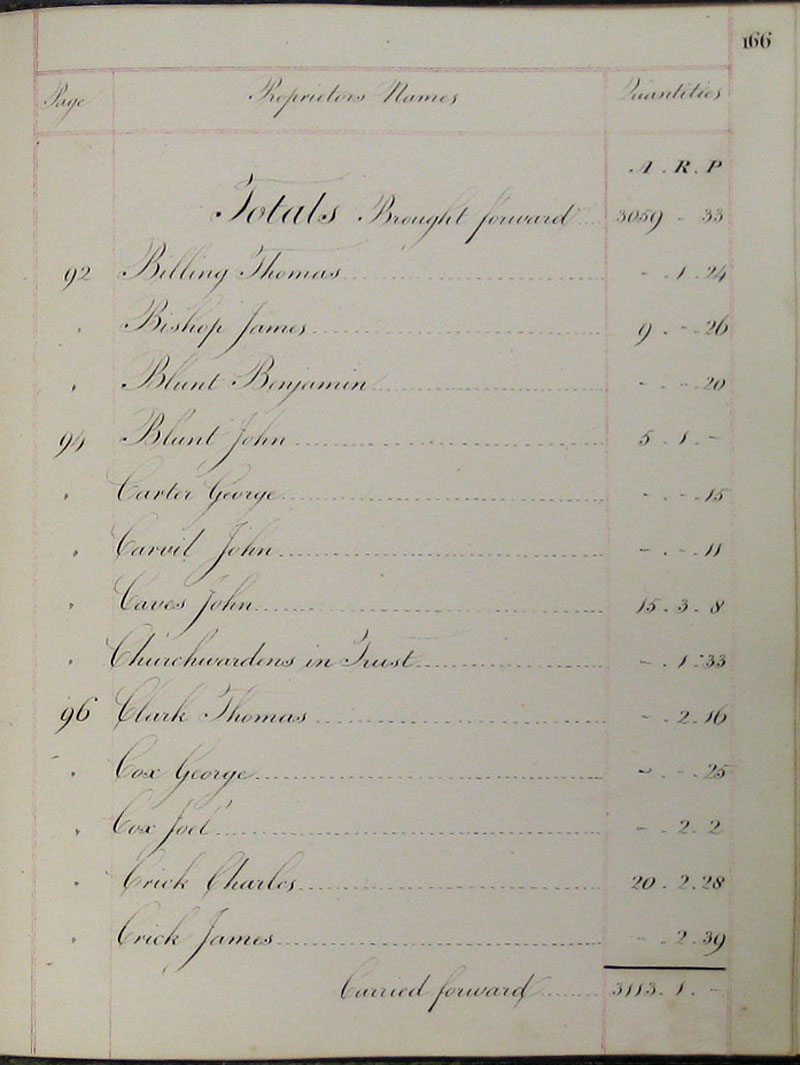 166
Page Proprietors Names Quantities
A . R . P
Totals Brought forward 3059 - 33
92 Billing Thomas - . 1 . 24
" Bishop James 9 . - . 26
" Blunt Benjamin - . - . 20
94 Blunt John 5 . 1 . -
" Carter George - . - . 15
" Carvil John - . - . 11
" Caves John 15 . 3 . 8
" Churchwardens in Trust - . 1 . 33
96 Clark Thomas - . 2 . 16
" Cox George - . - . 25
" Cox Joel - . 2 . 2
" Crick Charles 20 . 2 . 28
" Crick James - . 2 . 39
Carried forward 3113 . 1 . -